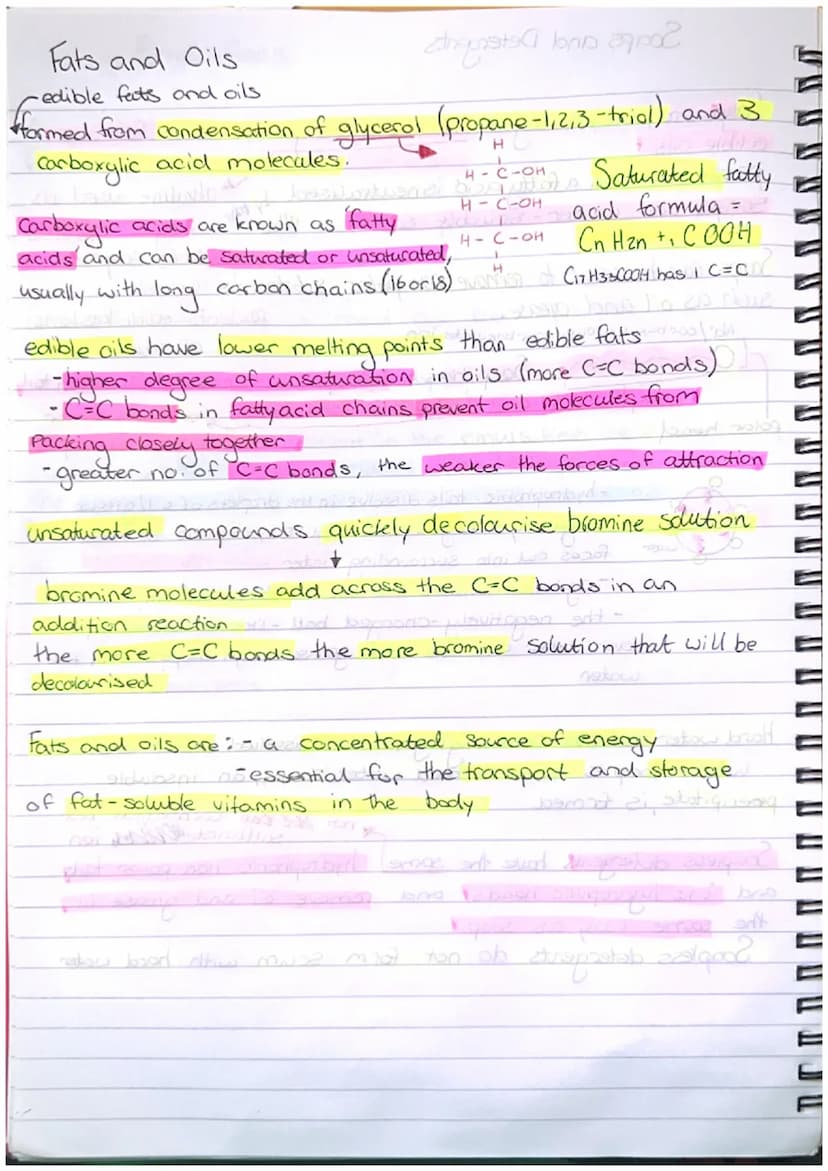 Fats and Oils
edible fats and oils
formed from condensation of glycerol (propane-1,2,3-triol) and 3
carboxylic acid molecules.
H
H - C - OH
H - C - OH
H - C - OH
H
Saturated fatty
acid formula =
CnH2n+1COOH
C17H33COOH has 1 C=C
Carboxylic acids are known as 'fatty
acids' and can be saturated or unsaturated,
usually with long carbon chains (16 or 18)
edible oils have lower melting points than edible fats
- higher degree of unsaturation in oils (more C=C bonds)
- C=C bonds in fatty acid chains prevent oil molecules from
packing closely together
- greater no. of C=C bonds, the weaker the forces of attraction
unsaturated compounds quickly decolourise bromine solution
bromine molecules add across the C=C bonds in an
addition reaction
the more C=C bonds the more bromine solution that will be
decolourised
Fats and oils are: - a concentrated source of energy
- essential for the transport and storage
of fat-soluble vitamins in the body